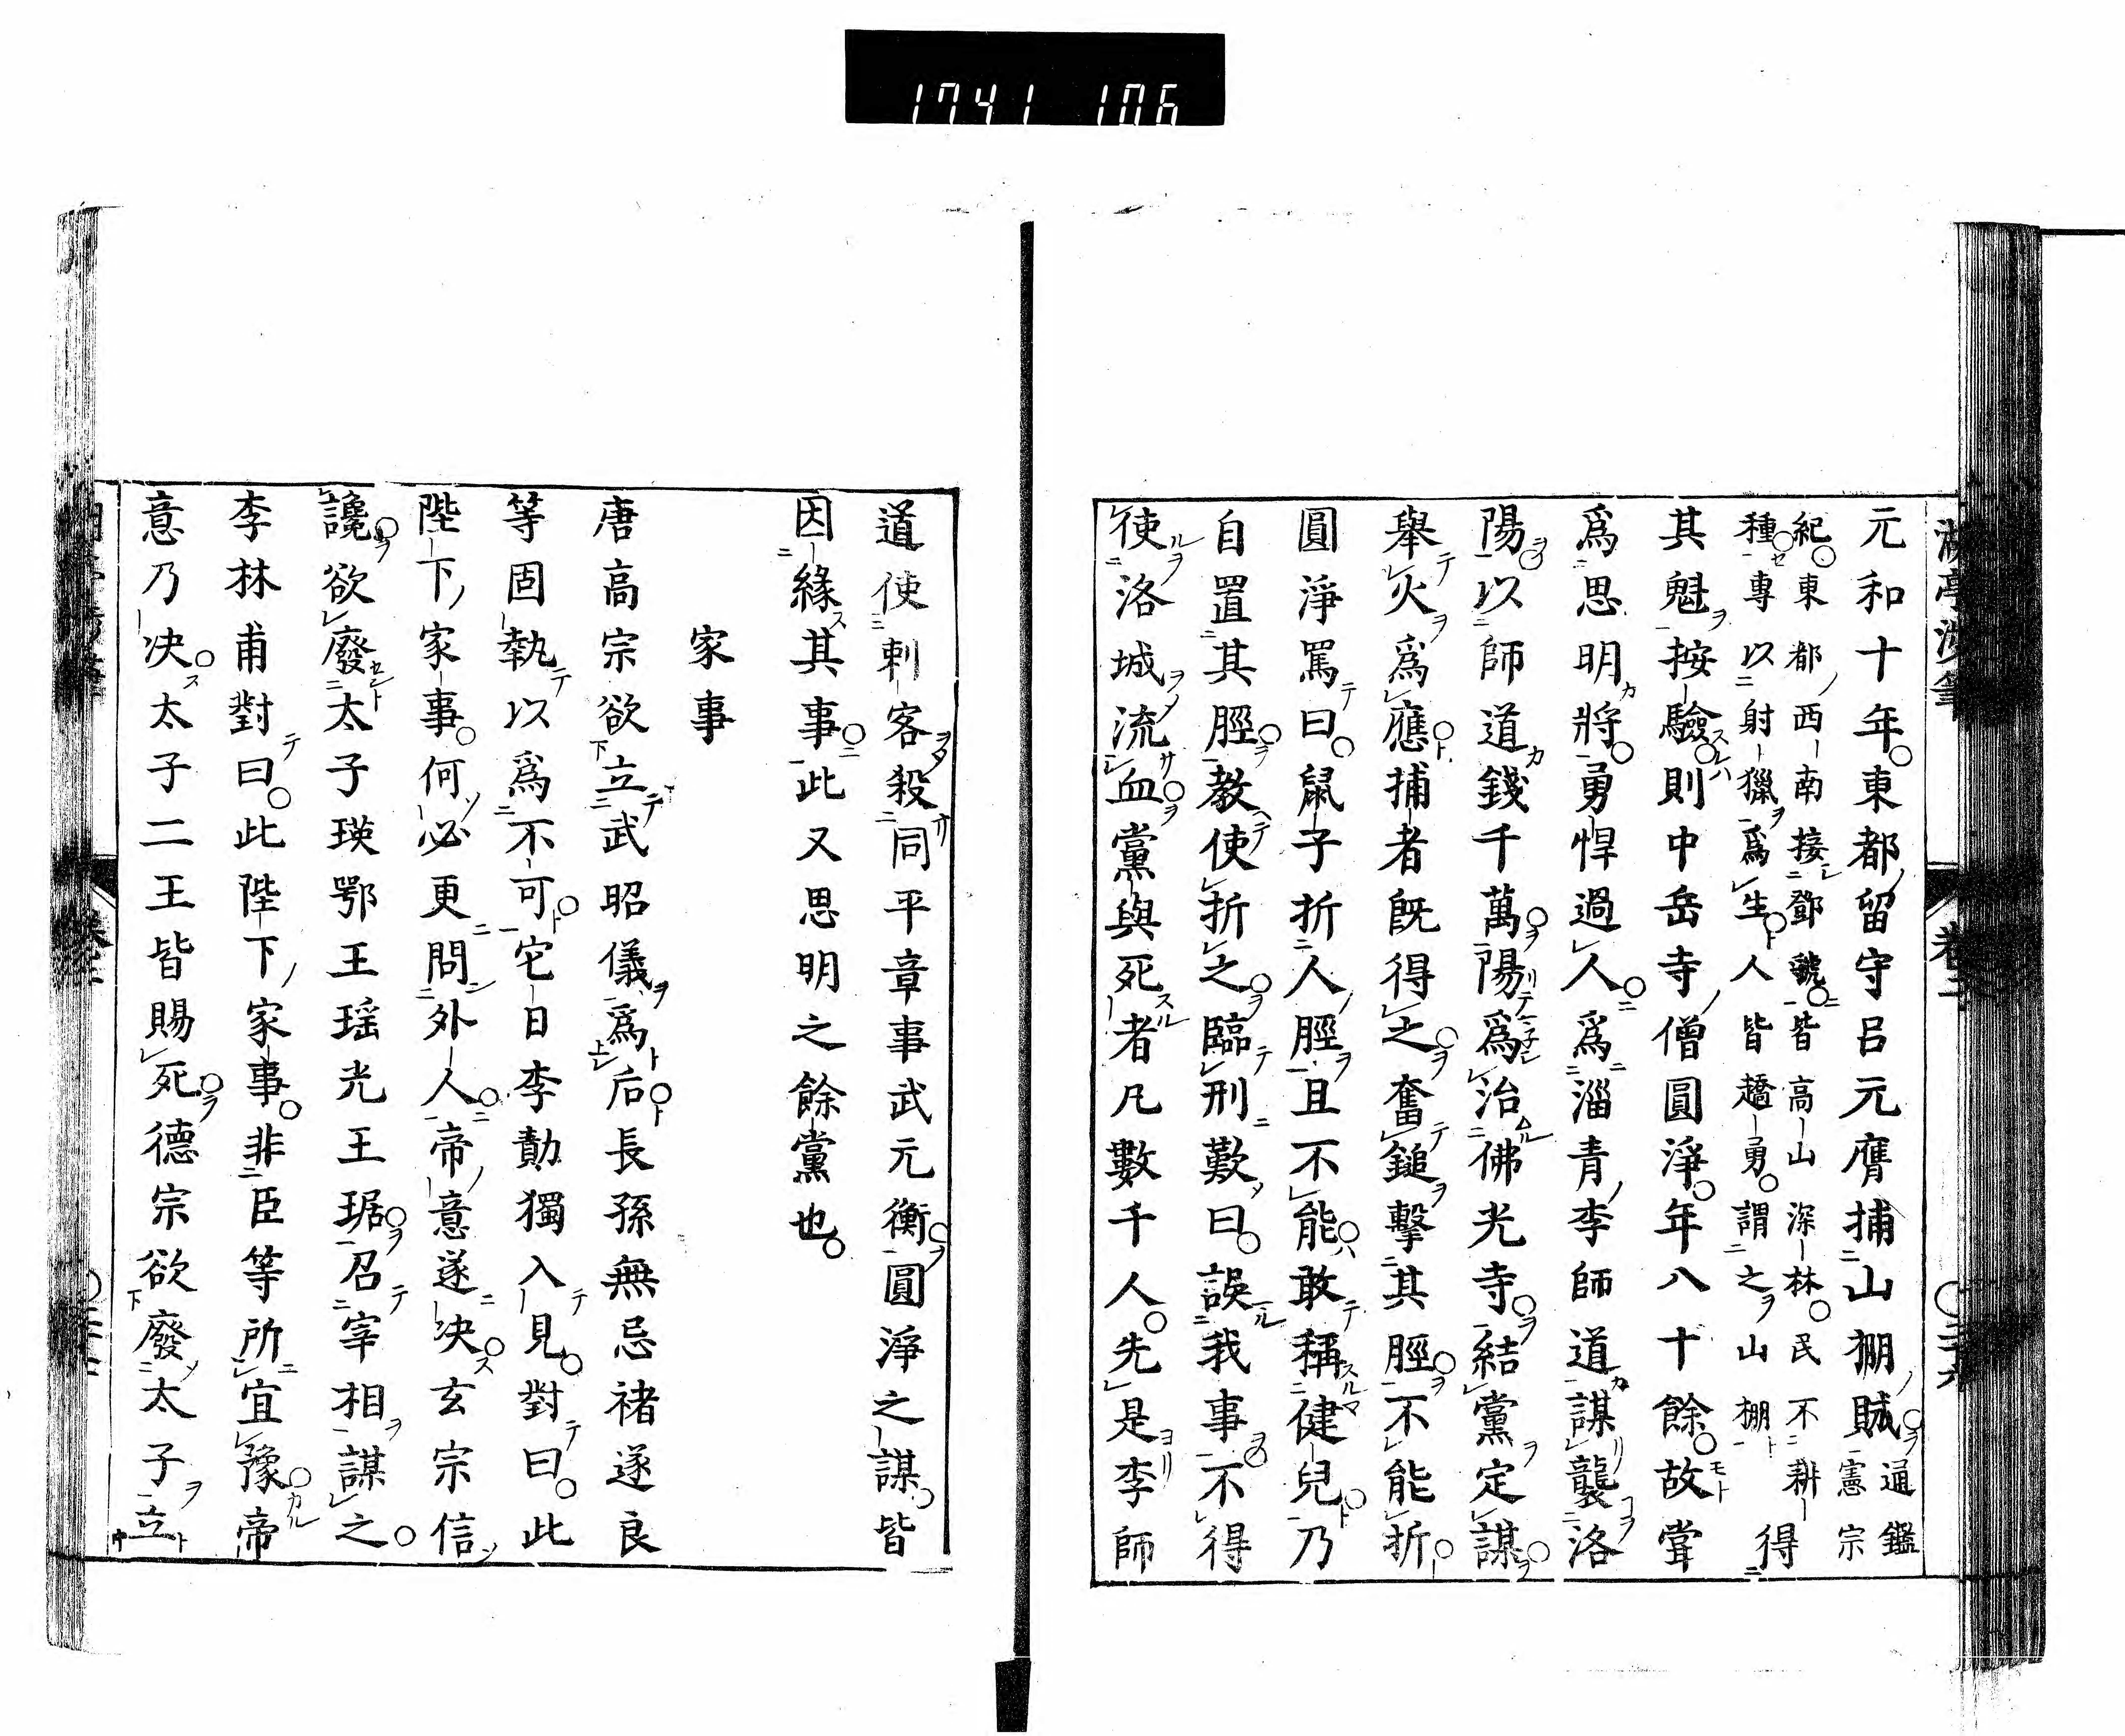 1741 106
元和十年東都留守呂元膺捕山棚賊通鑑憲宗
紀東都西南接鄧虢皆高山深林民不耕
種專以射獵爲生人皆趫勇謂之山棚得
其魁按驗則中岳寺僧圓淨年八十餘故甞
爲思明將勇悍過人爲淄青李師道謀襲洛
陽以師道錢千萬陽爲治佛光寺結黨定謀
舉火爲應捕者既得之奮鎚擊其脛不能折
圓淨罵曰鼠子折人脛且不能敢稱健兒乃
自置其脛教使折之臨刑歎曰誤我事不得
使洛城流血黨與死者凡數千人先是李師
道使刺客殺同平章事武元衡圓淨之謀皆
因緣其事此又思明之餘黨也
家事
唐高宗欲立武昭儀爲后長孫無忌禇遂良
等固執以爲不可它日李勣獨入見對曰此
陛下家事何必更問外人帝意遂决玄宗信
讒欲廢太子瑛鄂王瑶光王琚召宰相謀之
李林甫對曰此陛下家事非臣等所宜豫帝
意乃决太子二王皆賜死德宗欲廢太子立